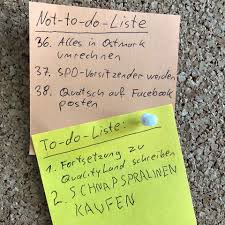 Not-to-do-Liste
36. Alles in Ostmark
umrechnen
37. SPD-Vorsitzender werden
38. Quatsch auf Facebook
posten
To-do-Liste:
1. Fortsetzung zu
QualityLand schreiben
2. SCHNAPSPRALINEN
KAUFEN